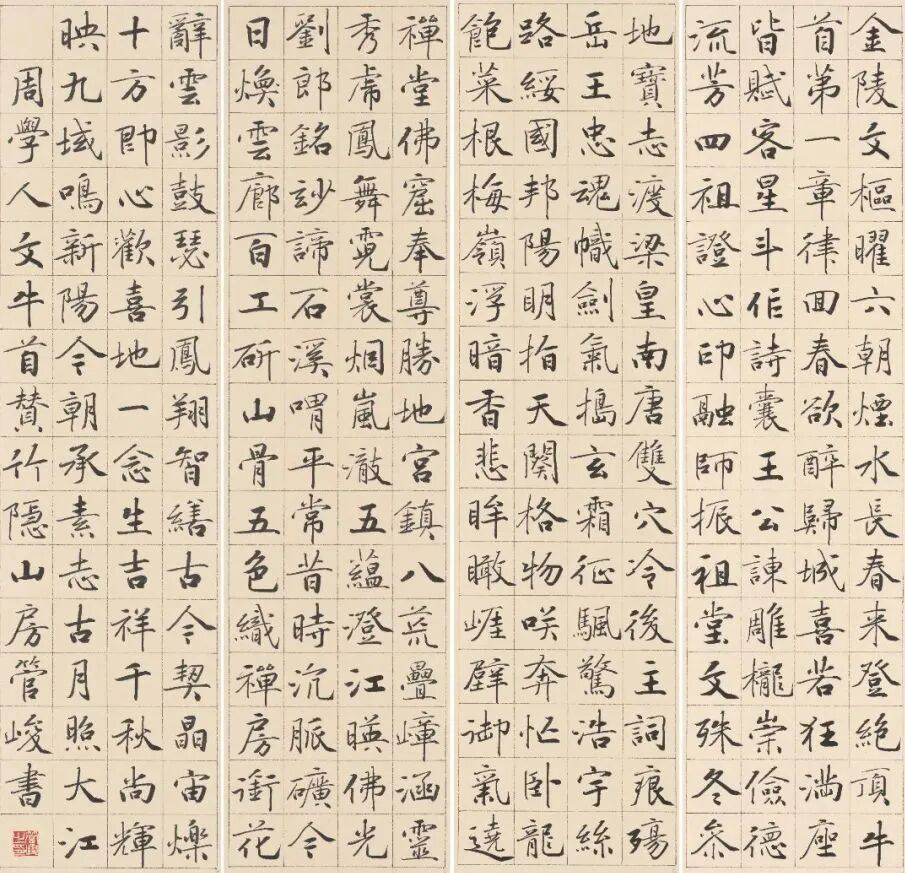 金陵文樞曜六朝煙水長春来登絕頂牛
首第一章律回春欲醉歸城喜若狂滿座
皆賦客星斗作詩囊王公諫雕櫳崇儉德
流芳四祖證心印融師振祖堂文殊冬参
地寶志渡梁皇南唐雙穴冷後主詞痕殤
岳王忠魂幟劍氣搗玄霜征颿驚浩宇絲
路綏國邦陽明指天闕格物咲奔忙卧龍
飽菜根梅嶺浮暗香悲眸瞰崕壁御氣遶
禪堂佛窟奉尊勝地宮鎮八荒疊嶂涵靈
秀虎鳳舞霓裳烟嵐澈五蘊澄江暎佛光
劉郎銘玅諦石溪喟平常昔時沉脈礦今
日煥雲廊百工斫山骨五色織禪房銜花
辭雲影鼓瑟引鳳翔智繕古今契晶宙爍
十方即心歡喜地一念生吉祥千秋尚輝
映九域鳴新陽今朝承素志古月照大江
周學人文牛首贊竹隱山房管峻書